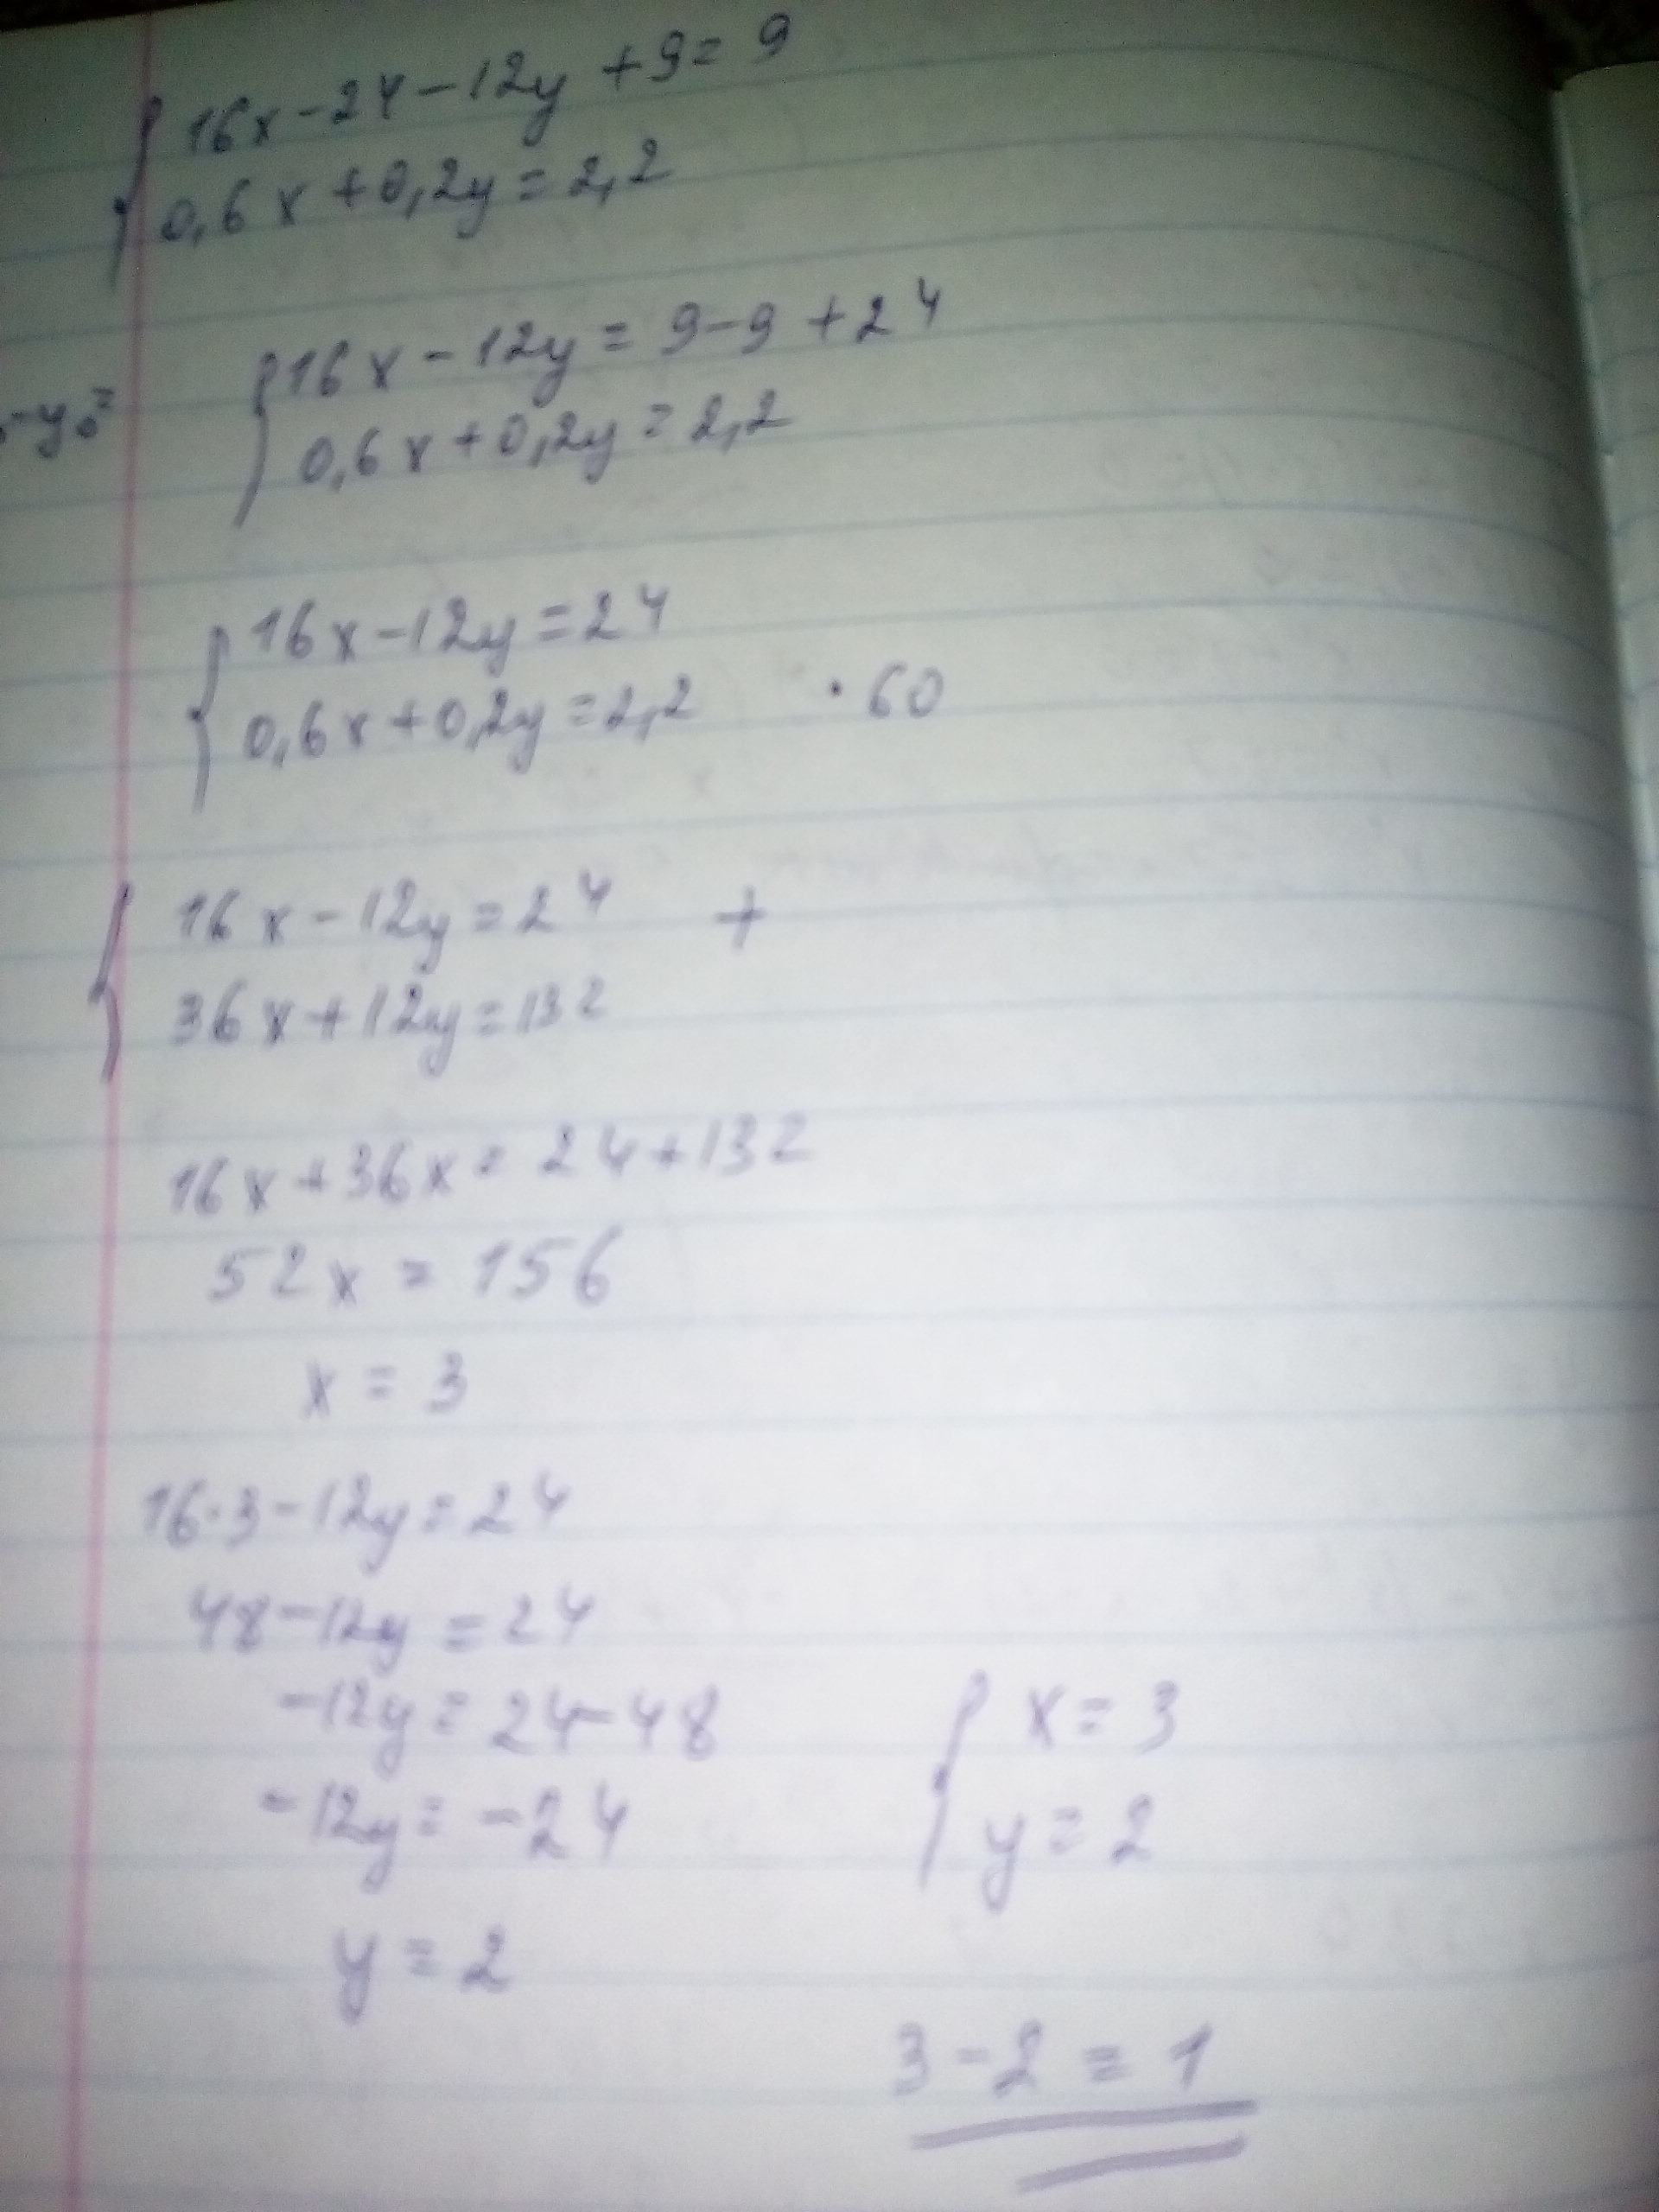 16x-24-12y+9=9
0,6x+0,2y=2,2
16x-12y=9-9+24
-y₀=
0,6x+0,2y=2,2
16x-12y=24
0,6x+0,2y=2,2 ·60
16x-12y=24 +
36x+12y=132
16x+36x=24+132
52x=156
x=3
16·3-12y=24
48-12y=24
-12y=24-48
-12y=-24
y=2
x=3
y=2
3-2=1